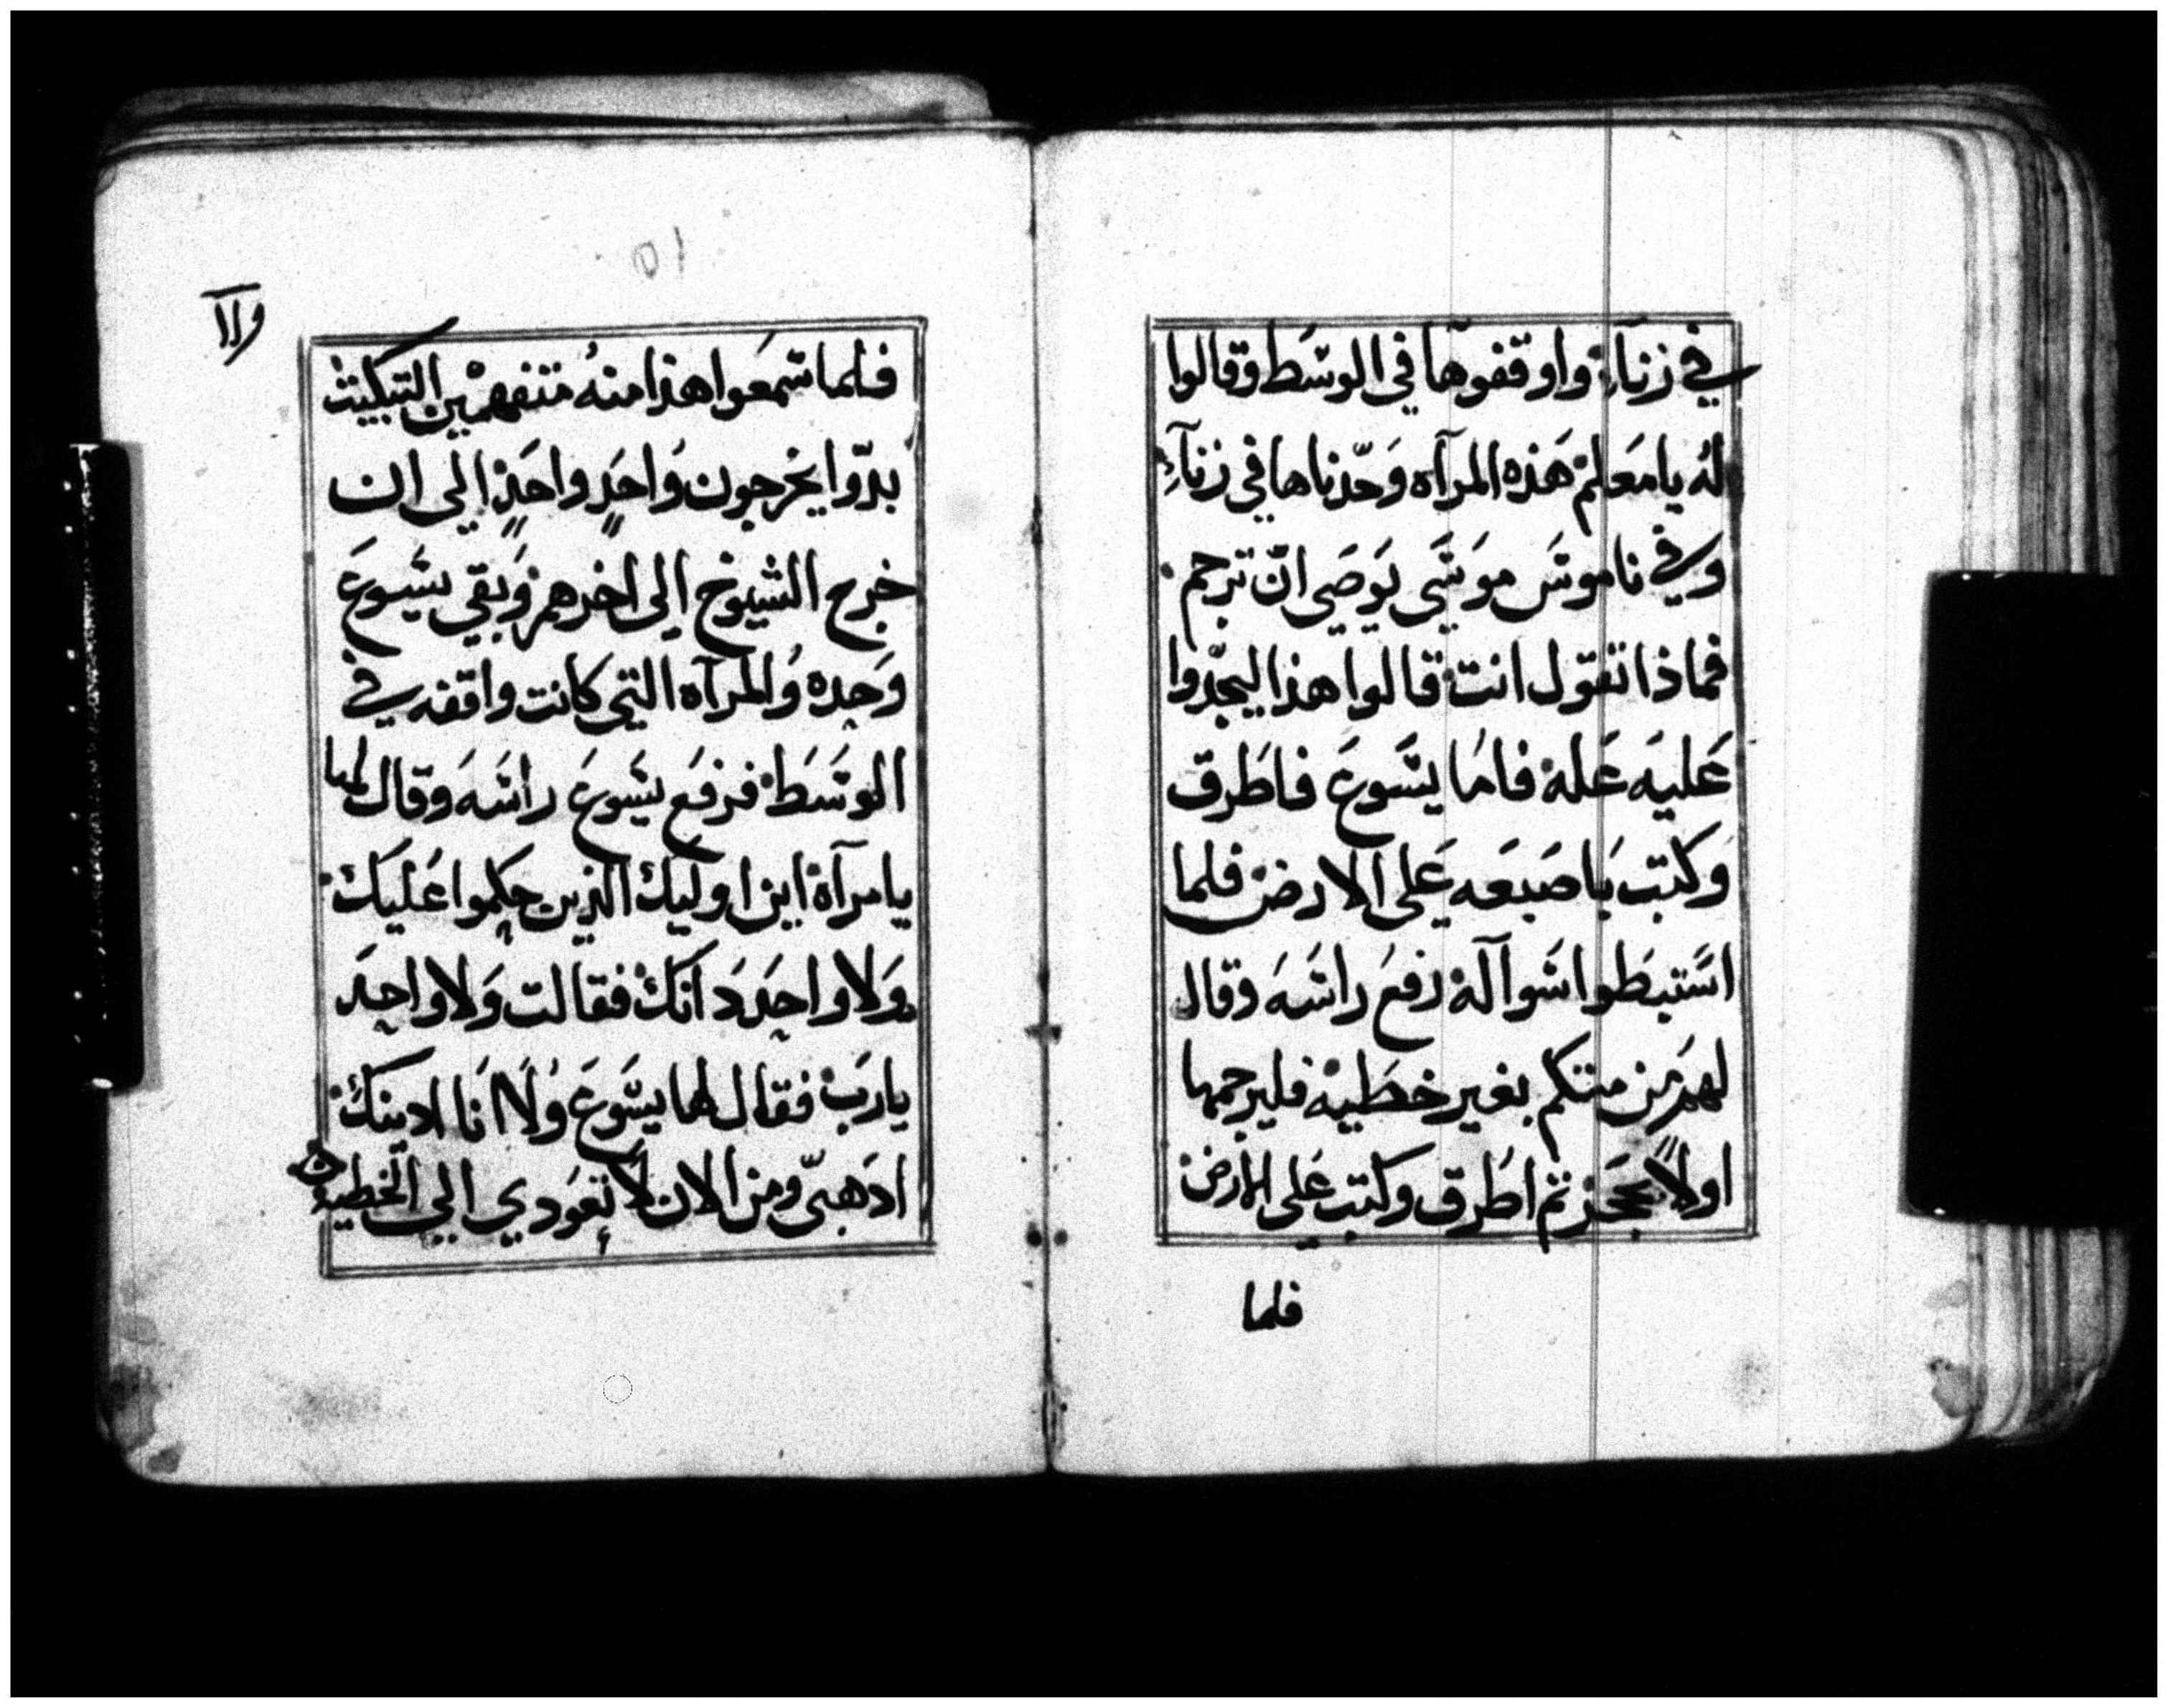 في زناءٍ واوقفوها في الوسَط وقالوا
لهُ يا معَلم هَذه المرآه وَجّدناها في زنآءٍ
وفي ناموسَ موسَي يَوصَي انّ ترجم
فماذا تقول انت قالوا هذا ليجّدوا
عَليَه عَلة فامَا يسَّوعَ فاطَرق
وَكتبَ بَاصَبعَه عَلي الارض فلما
اسَّتبطَوا سَوآلهَ رَفعَ راسَهَ وقال
لهمَ مَن منكم بغير خطَيه فليرجمها
اولاً بحَجَر ثم اطَرق وكتب عَلي الارض
فلما
فلما سَمعَوا هذا منهُ متفهمين التبكيت
بدّوا يخرجون وَاحدٍ واحَدٍ الي ان
خرج الشيوخ الي اخرهم وَبقي يسَوعَ
وَحده وَالمرآه التي كانت واقفه في
الوسَط فرفعَ يسَوعَ راسَهَ وقال لها
يا مرآة اين اوليَك الذين حكموا عَليَك
وَلا واحدَ دَانَك فقالت وَلا واحدَ
يا ربَ فقال لها يسَّوعَ وَلا انَا ادينك
اذَهبيّ ومن الان لا تعَودي الي الخطيه